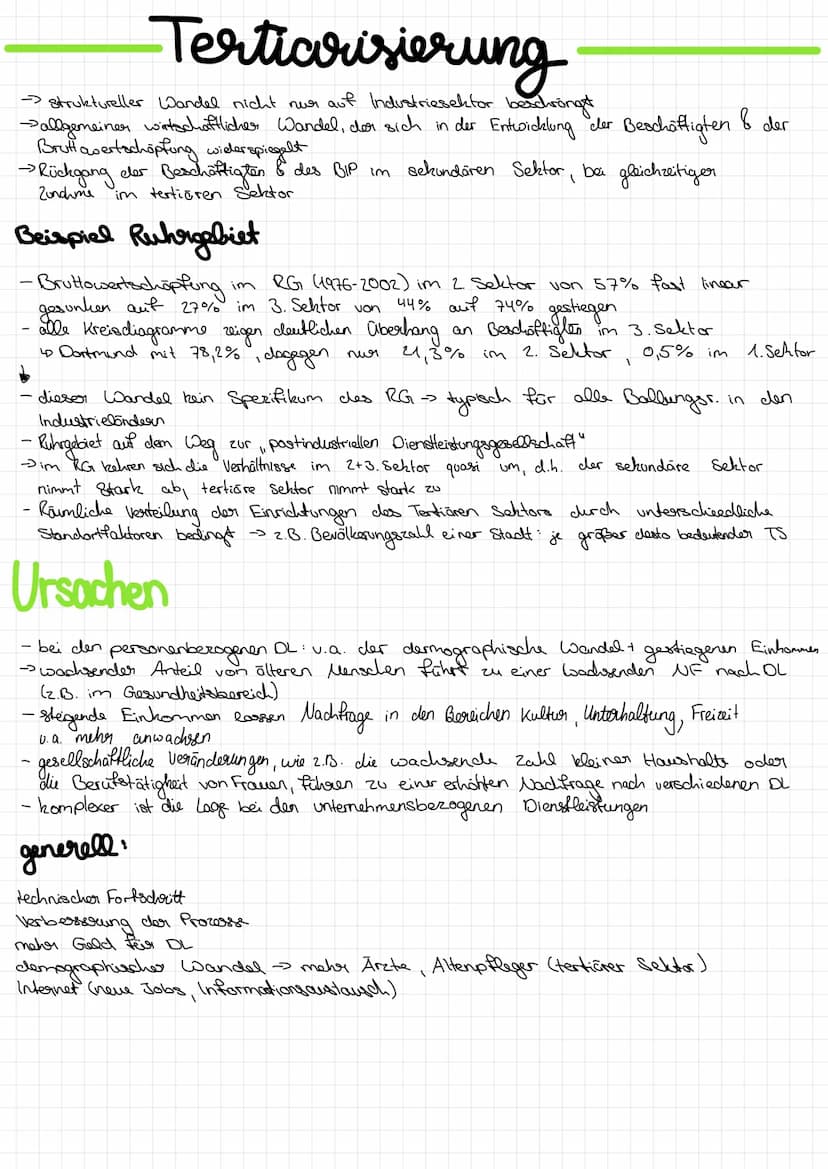 Tertiarisierung
-> struktureller Wandel nicht nur auf Industriesektor beschrängt
-> allgemeiner wirtschaftlicher Wandel, der sich in der Entwicklung der Beschäftigten & der
Bruttowertschöpfung widerspiegelt
-> Rückgang der Beschäftigten & des BIP im sekundären Sektor, bei gleichzeitiger
Zunahme im tertiären Sektor
Beispiel Ruhrgebiet
- Bruttowertschöpfung im RG (1976-2002) im 2 Sektor von 57% fast linear
gesunken auf 27% im 3. Sektor von 44% auf 74% gestiegen
- alle Kreisdiagramme zeigen deutlichen Überhang an Beschäftigten im 3. Sektor
↳ Dortmund mit 78,2%, dagegen nur 21,3% im 2. Sektor, 0,5% im 1. Sektor
↓
- dieser Wandel kein Spezifikum des RG -> typisch für alle Ballungsr. in den
Industrieländern
- Ruhrgebiet auf dem Weg zur „postindustriellen Dienstleistungsgesellschaft"
-> im RG kehren sich die Verhältnisse im 2+3. Sektor quasi um, d.h. der sekundäre Sektor
nimmt stark ab, tertiäre Sektor nimmt stark zu
- Räumliche Verteilung der Einrichtungen des Tertiären Sektors durch unterschiedliche
Standortfaktoren bedingt -> z.B. Bevölkerungszahl einer Stadt: je größer desto bedeutender TS
Ursachen
- bei den personenbezogenen DL: v.a. der demographische Wandel + gestiegenen Einkommen
-> wachsender Anteil von älteren Menschen führt zu einer wachsenden NF nach DL
(z.B. im Gesundheitsbereich)
- steigende Einkommen lassen Nachfrage in den Bereichen Kultur, Unterhaltung, Freizeit
u.a. mehr anwachsen
- gesellschaftliche Veränderungen, wie z.B. die wachsende Zahl kleiner Haushalte oder
die Berufstätigkeit von Frauen, führen zu einer erhöhten Nachfrage nach verschiedenen DL
- komplexer ist die Lage bei den unternehmensbezogenen Dienstleistungen
generell:
technischer Fortschritt
Verbesserung der Prozesse
mehr Geld für DL
demographischer Wandel -> mehr Ärzte, Altenpfleger (tertiärer Sektor)
Internet (neue Jobs, Informationsaustausch)